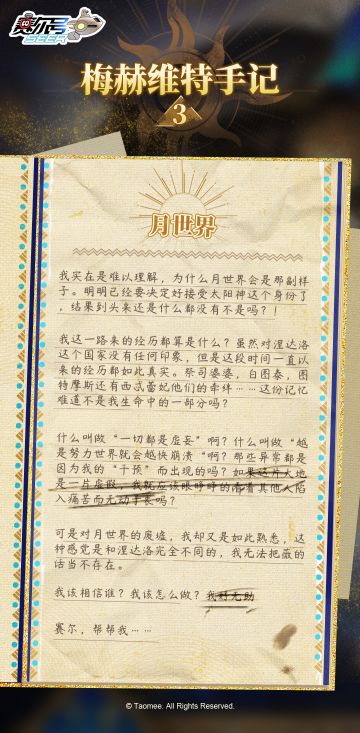 赛尔号
SEER
梅赫维特手记
3
月世界
我实在是难以理解，为什么月世界会是那副样
子。明明已经要决定好接受太阳神这个身份了
，结果到头来还是什么都没有不是吗？！
我这一路来的经历都算是什么？虽然对涅达洛
这个国家没有任何印象，但是这段时间一直以
来的经历都如此真实。祭司婆婆，白图泰，图
特摩斯还有西忒蕾妃他们的牵绊……这份记忆
难道不是我生命中的一部分吗？
什么叫做“一切都是虚妄”啊？什么叫做“越
是努力世界就会越快崩溃“啊？那些异常都是
因为我的“干预”而出现的吗？如果这片大地
是一片虚假，我就应该眼睁睁的看着其他人陷
入痛苦而无动于衷吗？
可是对月世界的废墟，我却又是如此熟悉，这
种感觉是和涅达洛完全不同的，我无法把薇的
话当不存在。
我该相信谁？我该怎么做？我好无助
赛尔，帮帮我……
© Taomee. All Rights Reserved.